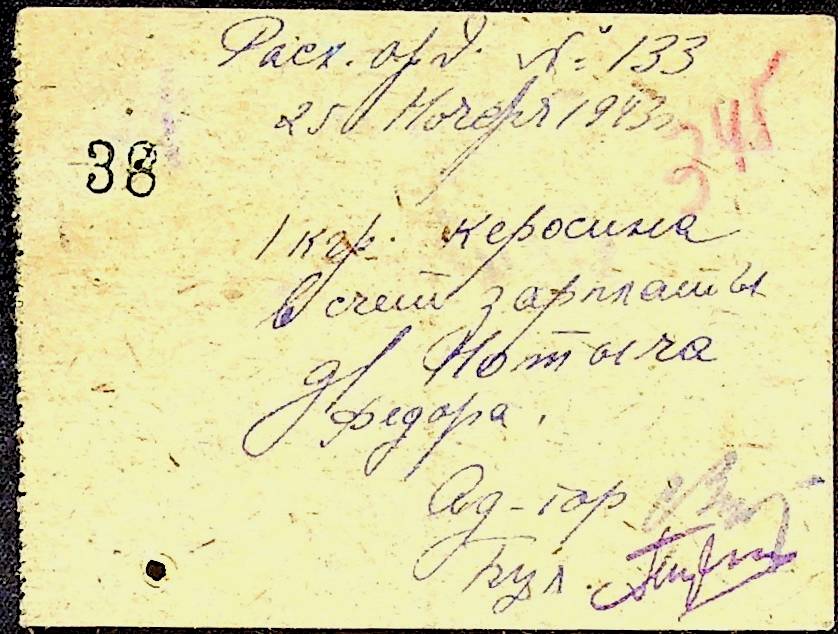 Расх. орд. № 133
25 Ноября 1943 г
345
38
1 кгр. керосина
в счет зарплаты
Нотыча
Федора.
Ад-тор
Бух.